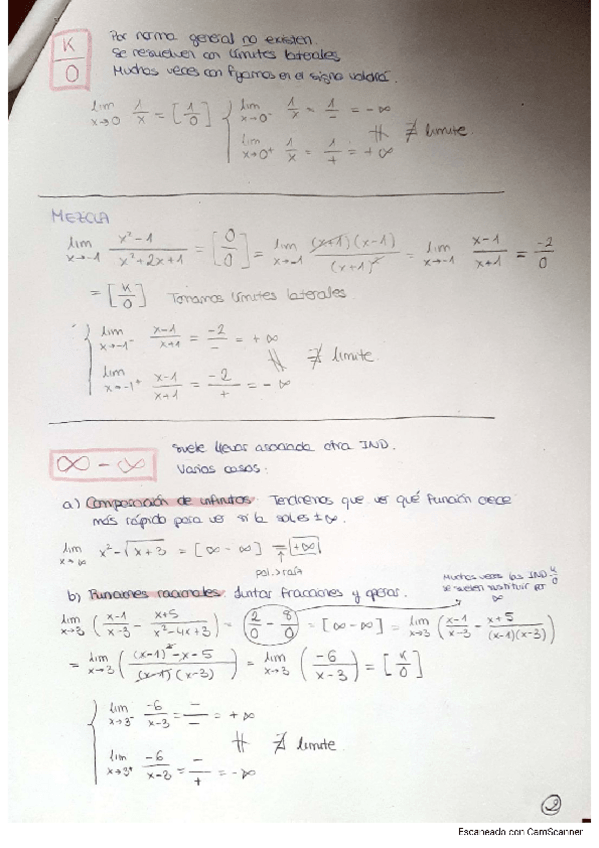 K/0 Por norma general no existen.
Se resuelven con límites laterales.
Muchas veces con fijarnos en el signo valdrá.
lim x→0 1/x = [1/0] { lim x→0⁻ 1/x = 1/− = −∞
lim x→0⁺ 1/x = 1/+ = +∞ ∦ ∄ límite.
MEZCLA
lim x→-1 (x²-1)/(x²+2x+1) = [0/0] = lim x→-1 (x+1)(x-1)/(x+1)² = lim x→-1 (x-1)/(x+1) = -2/0
= [K/0] Tomamos límites laterales.
{ lim x→-1⁻ (x-1)/(x+1) = -2/− = +∞
lim x→-1⁺ (x-1)/(x+1) = -2/+ = −∞ ∦ ∄ límite.
∞ − ∞ Suele llevar asociada otra IND.
Varios casos:
a) Comparación de infinitos. Tendremos que ver qué función crece
más rápido para ver si la sol es ±∞.
lim x→∞ x²-√(x+3) = [∞ − ∞] = +∞
pol.>raíz
b) Funciones racionales. Juntar fracciones y operar.
Muchas veces las IND K/0
se suelen sustituir por
∞
lim x→3 ((x-1)/(x-3) − (x+5)/(x²-4x+3)) = (2/0 − 8/0) = [∞−∞] = lim x→3 ((x-1)/(x-3) − (x+5)/((x-1)(x-3)))
= lim x→3 (((x-1)²-x-5)/((x-1)(x-3))) = lim x→3 (-6/(x-3)) = [K/0]
{ lim x→3⁻ -6/(x-3) = −/− = +∞
lim x→3⁺ -6/(x-3) = −/+ = −∞ ∦ ∄ límite.
2
Escaneado con CamScanner